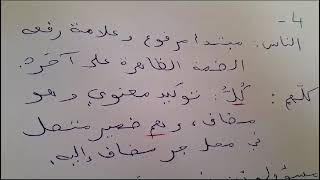 4 -
الناس: مبتدأ مرفوع وعلامة رفعه
الضمة الظاهرة على آخره.
كلهم: كُلُّ: توكيد معنوي وهو
مضاف، وهم ضمير متصل
في محل جر مضاف إليه.